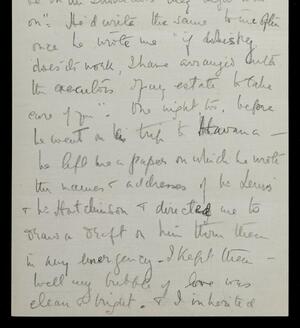 on". He'd write the same to me often
once he wrote me "if whiskey
doesn't work, I have arranged with
the executors of my estate to take
care of you". One night too, before
he went on a trip to Havana -
he left me a paper on which he wrote
the names & addresses of his
& Mr Hutchinson & directed me to
draw a draft on him them then
in any emergency. I kept them -
well my bubble of love was
clean & bright. & I inherited